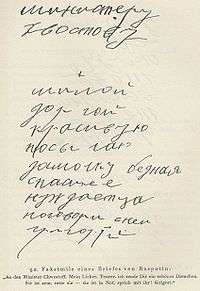 министеру
хвостову
милой
дорогой
красивую
посылаю
дамочку бедная
спаси ее
нуждаетца
поговори с ней
григорий
Faksimile eines Briefes von Rasputin:
„An den Minister Chwostoff. Mein Lieber, Teurer, ich sende Dir ein schönes Dämchen.
Sie ist arm, rette sie — sie ist in Not, sprich mit ihr! Grigori.“